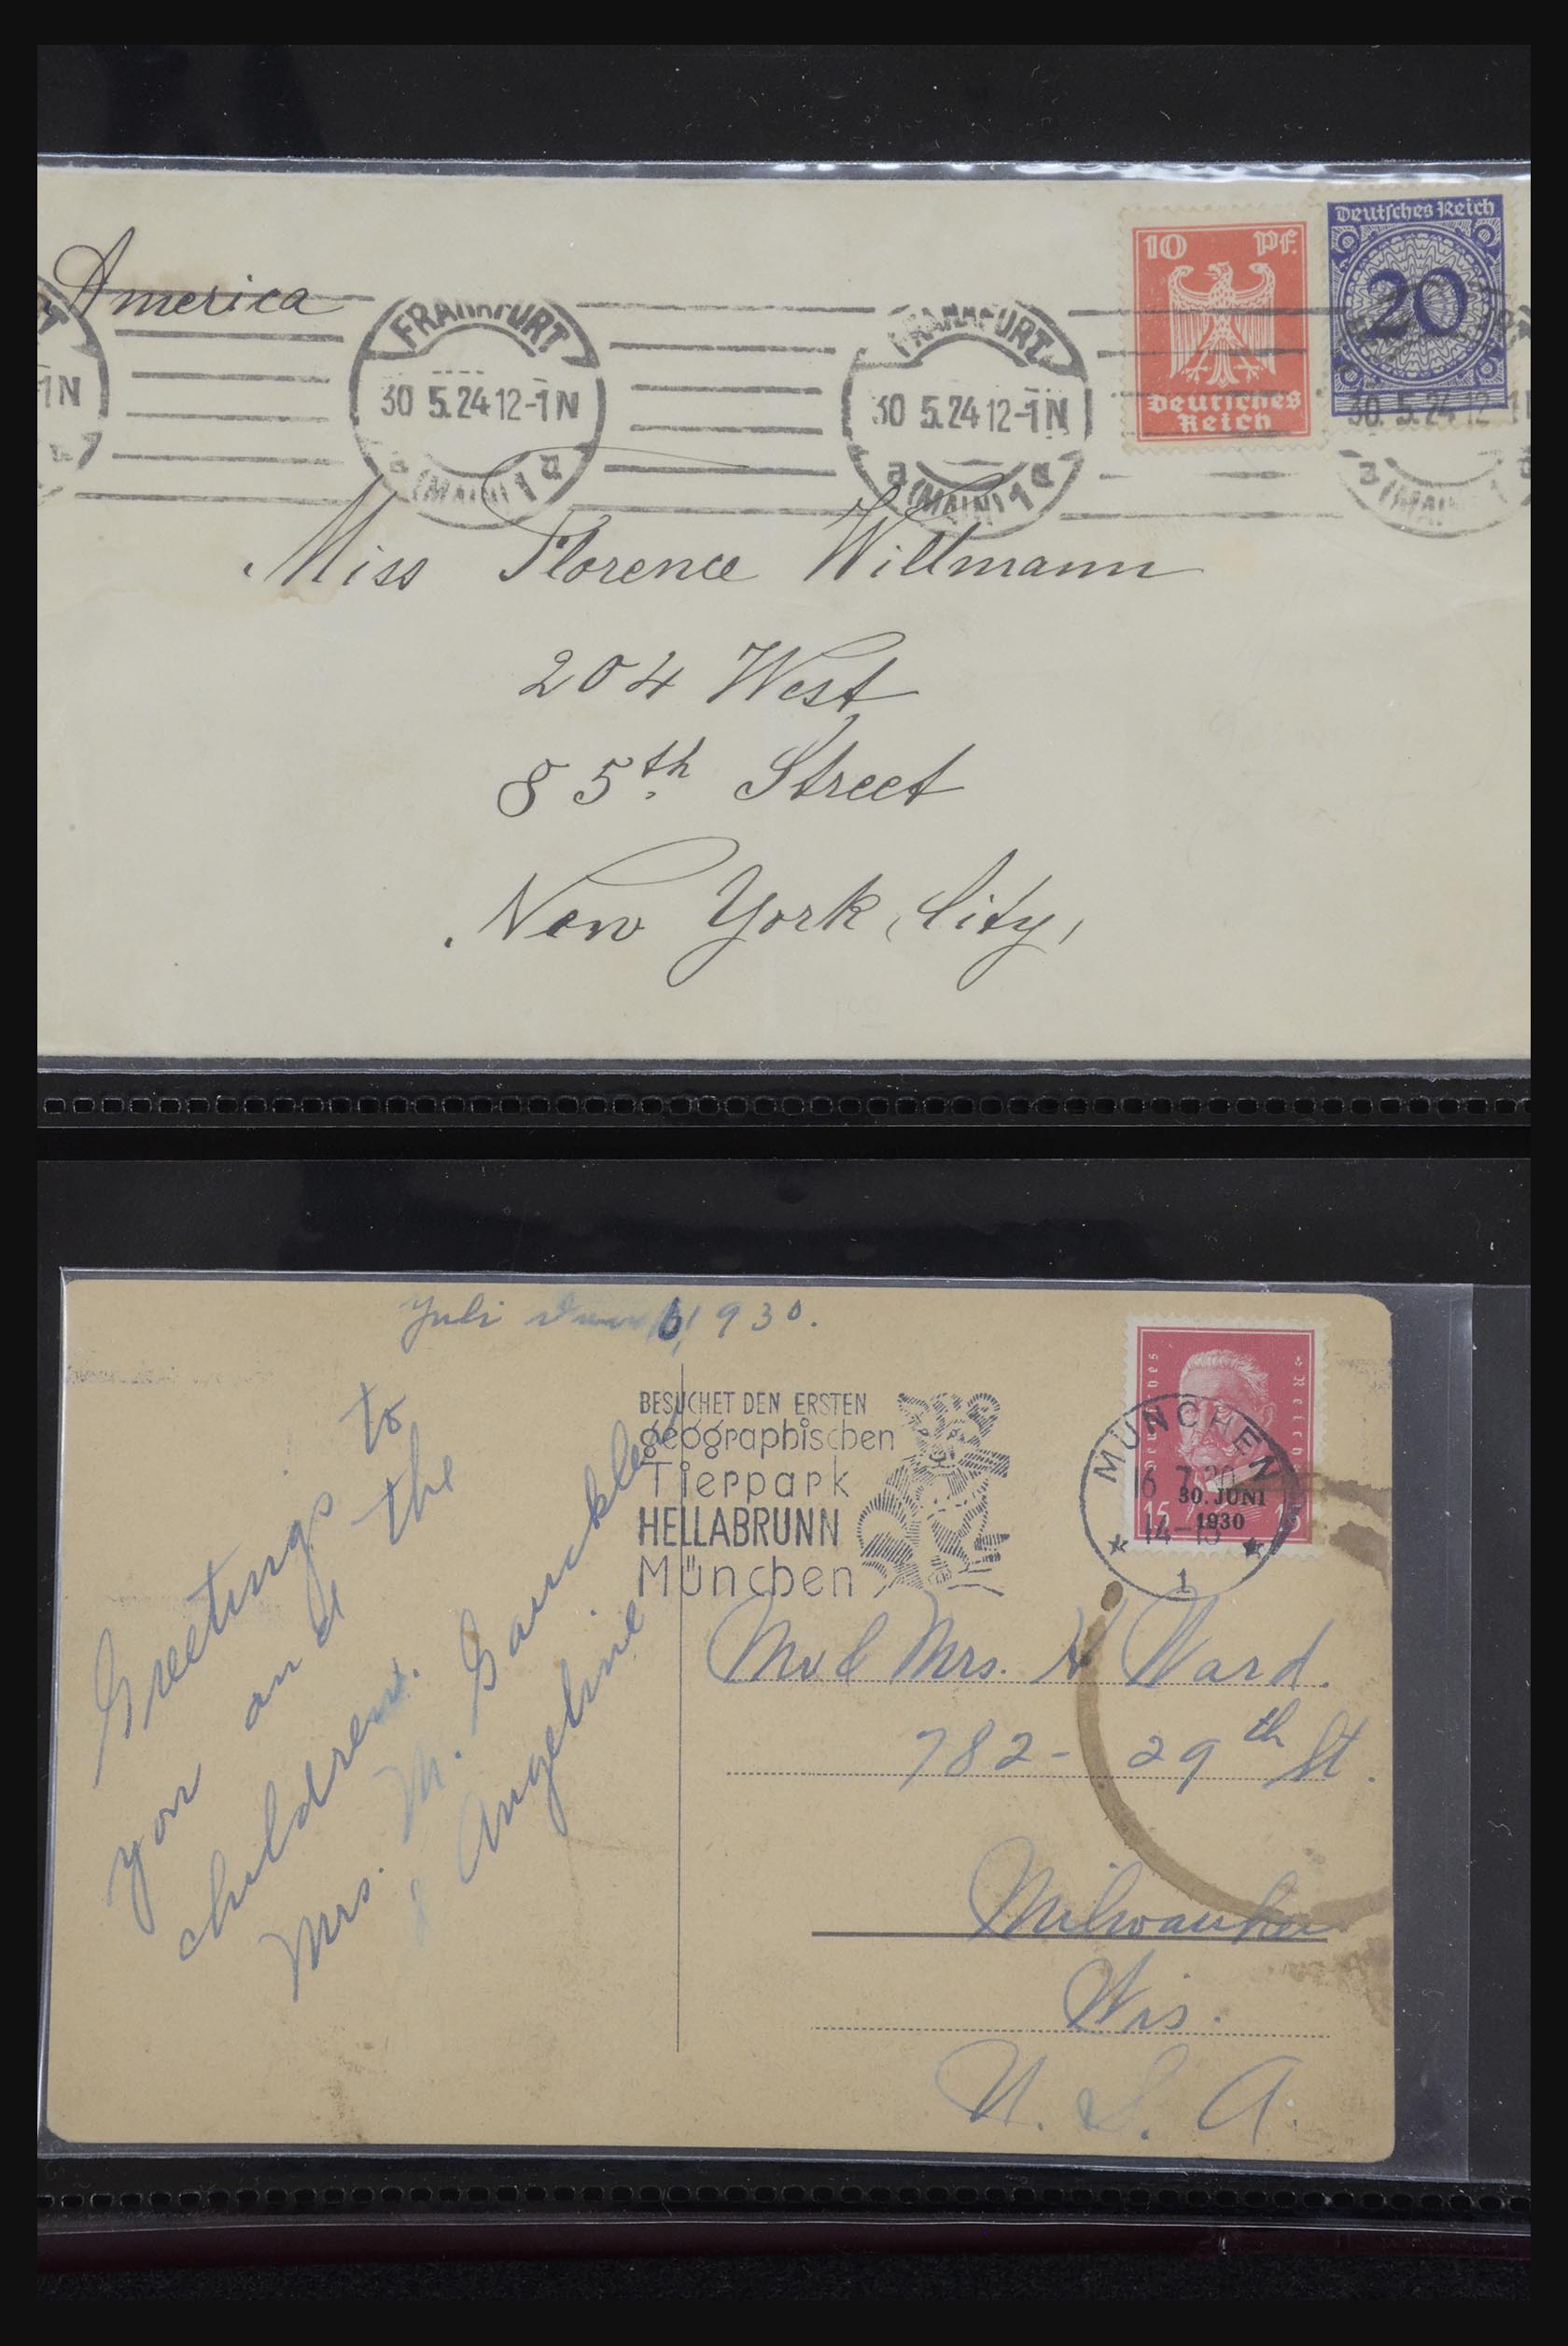 America
10 Pf.
Deutsches Reich
Deutsches Reich
20
FRANKFURT
30 5.24 12-1 N
a (MAIN) 1 a
FRANKFURT
30 5.24 12-1 N
a (MAIN) 1 a
30. 5.24 12-1
a (MAIN) 1
1 N
Miss Florence Willmann
204 West
85th Street
New York City,
Juli 6 1930.
BESUCHET DEN ERSTEN
geographischen
Tierpark
HELLABRUNN
München
Deutsches Reich
15 15
30. JUNI
1930
MÜNCHEN
6. 7. 30
1
Greetings to
you and the
children.
Mrs. M.
& Angeline
Mr & Mrs. H Ward.
782 - 29th St.
Milwaukee
Wis.
U. S. A.